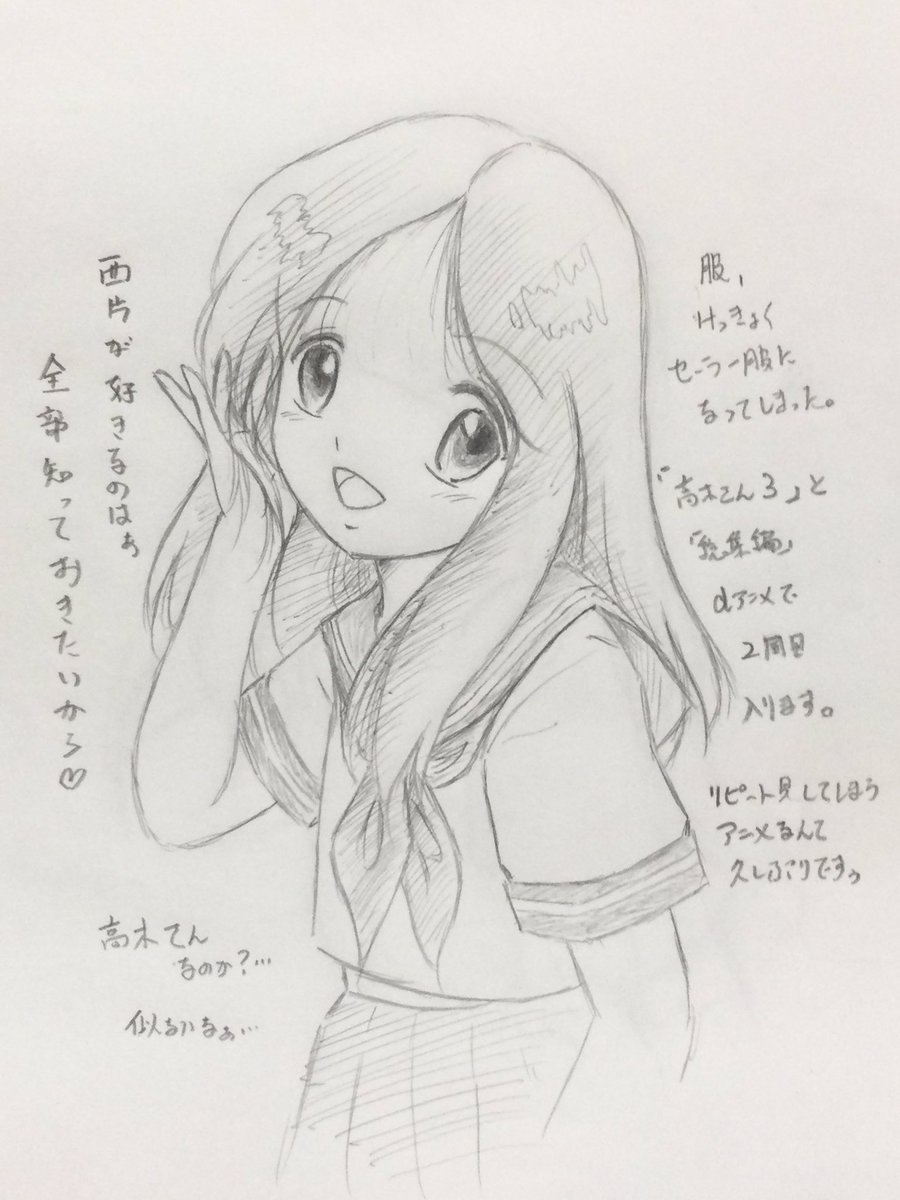 西片が好きなのはぁ
全部知っておきたいから♡
服、
けっきょく
セーラー服に
なってしまった。
「高木さん3」と
「総集編」
dアニメで
2周目
入ります。
リピート見してしまう
アニメなんて
久しぶりですっ
高木さん
なのか?…
似ないなぁ…